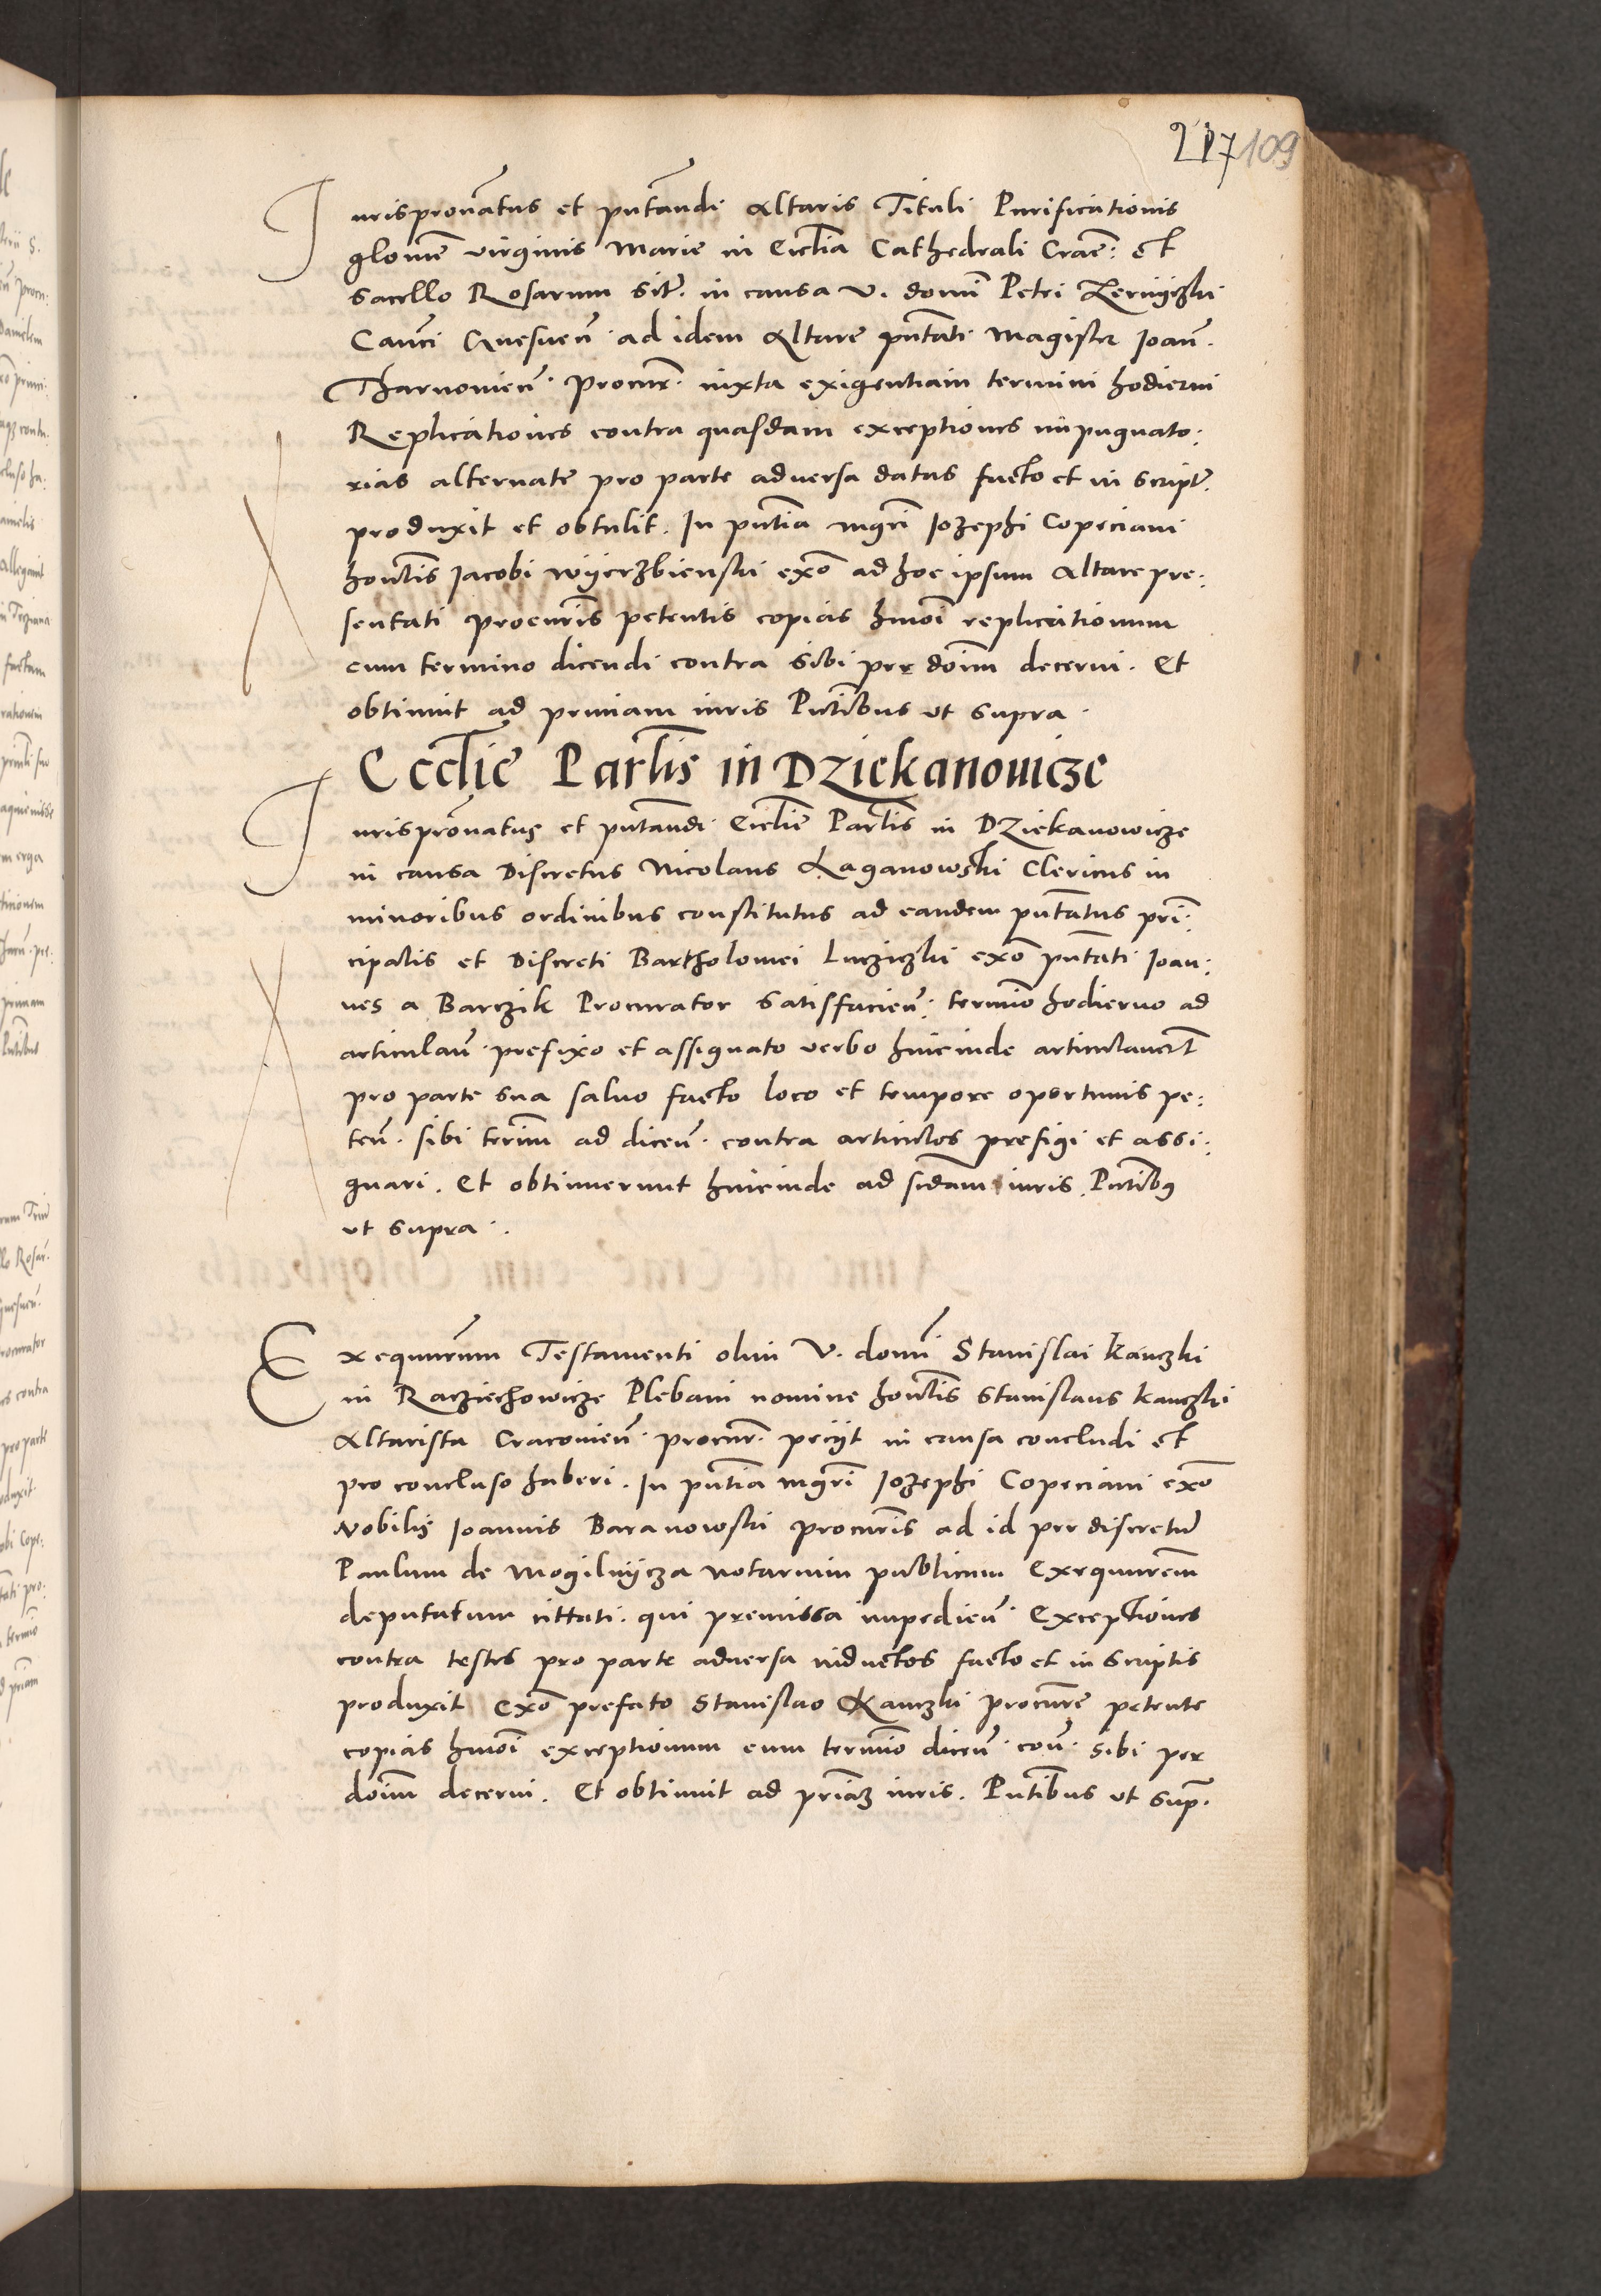 217 109
Jurispron̄atus et pn̄tandi Altaris Tituli Purificationis
glonim̄e virginis Marie in Ecclīa Cathedrali Cracē: et
Sacello Rosarum Sitē. in causa V. domī Petri
Canci Gnesneñ. ad idem Altare pn̄tati Magister Joañ.
Tharnovieñ. Procur̄. iuxta exigentiam termini hodierni
Replicationes contra quasdam exceptiones impugnato:
rias alternatē pro parte adversa datas facto et in script̄.
produxit et obtulit. In pn̄tia mgrī Jozephi Copeciani
hon̄tis Jacobi Wyerzbienski exō ad hoc ipsum Altare pre:
sentati procur̄is petentis copias hmōi replicationum
cum termino dicendi contra Sibi per doīm decerni. Et
obtinuit ad primam iuris Pn̄tibus ut Supra.
Ecclīe Parlīs in Dziekanovicze
Jurispron̄atus et pn̄tandi Ecclīe Parlīs in Dziekanowicze
in causa Discretus Nicolaus Laganowski Clericus in
minoribus ordinibus constitutus ad eandem pn̄tatus prī:
cipalis et Discreti Bartholomei exō pn̄tati Joan:
nes a Barczik Procurator Satisfacieñ: termīo hodierno ad
articulañ. prefixo et assignato verbo hincinde articulaver̄t
pro parte sua salvo facto loco et tempore oportunis pe:
teñ. sibi term̄m ad diceñ. contra articulos prefigi et assi:
gnari. Et obtinuerunt hincinde ad sc̄dam iuris. Pn̄tibus
ut supra.
Exequur̄um Testamenti olim V. domī Stanislai Kanczki
in Racziechowicze Plebani nomine hon̄tis Stanislaus Kanczki
Altarista Cracovieñ. procur̄. peciit in causa concludi et
pro concluso haberi. In pn̄tia mgrī Jozephi Copeciani exō
Nobilis Joannis Baranowski procur̄is ad id per discretū
Paulum de Mogilnycza notarium publicum Exequur̄em
deputatum cittati. qui premissa impedieñ. Exceptiones
contra testes pro parte adversa inductos facto et in Scriptis
produxit Exō prefato Stanislao Kanczki procur̄e petente
copias hmōi exceptionum cum termīo diceñ. coñ. Sibi per
doīm decerni. Et obtinuit ad prīaz iuris. Pn̄tibus ut sup̄.